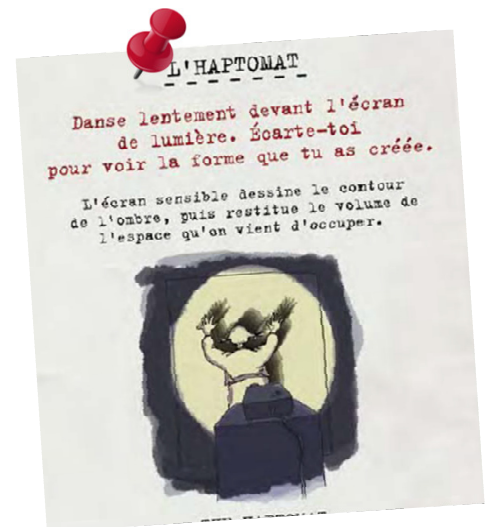 L'HAPTOMAT
Danse lentement devant l'écran
de lumière. Écarte-toi
pour voir la forme que tu as créée.
L'écran sensible dessine le contour
de l'ombre, puis restitue le volume de
l'espace qu'on vient d'occuper.